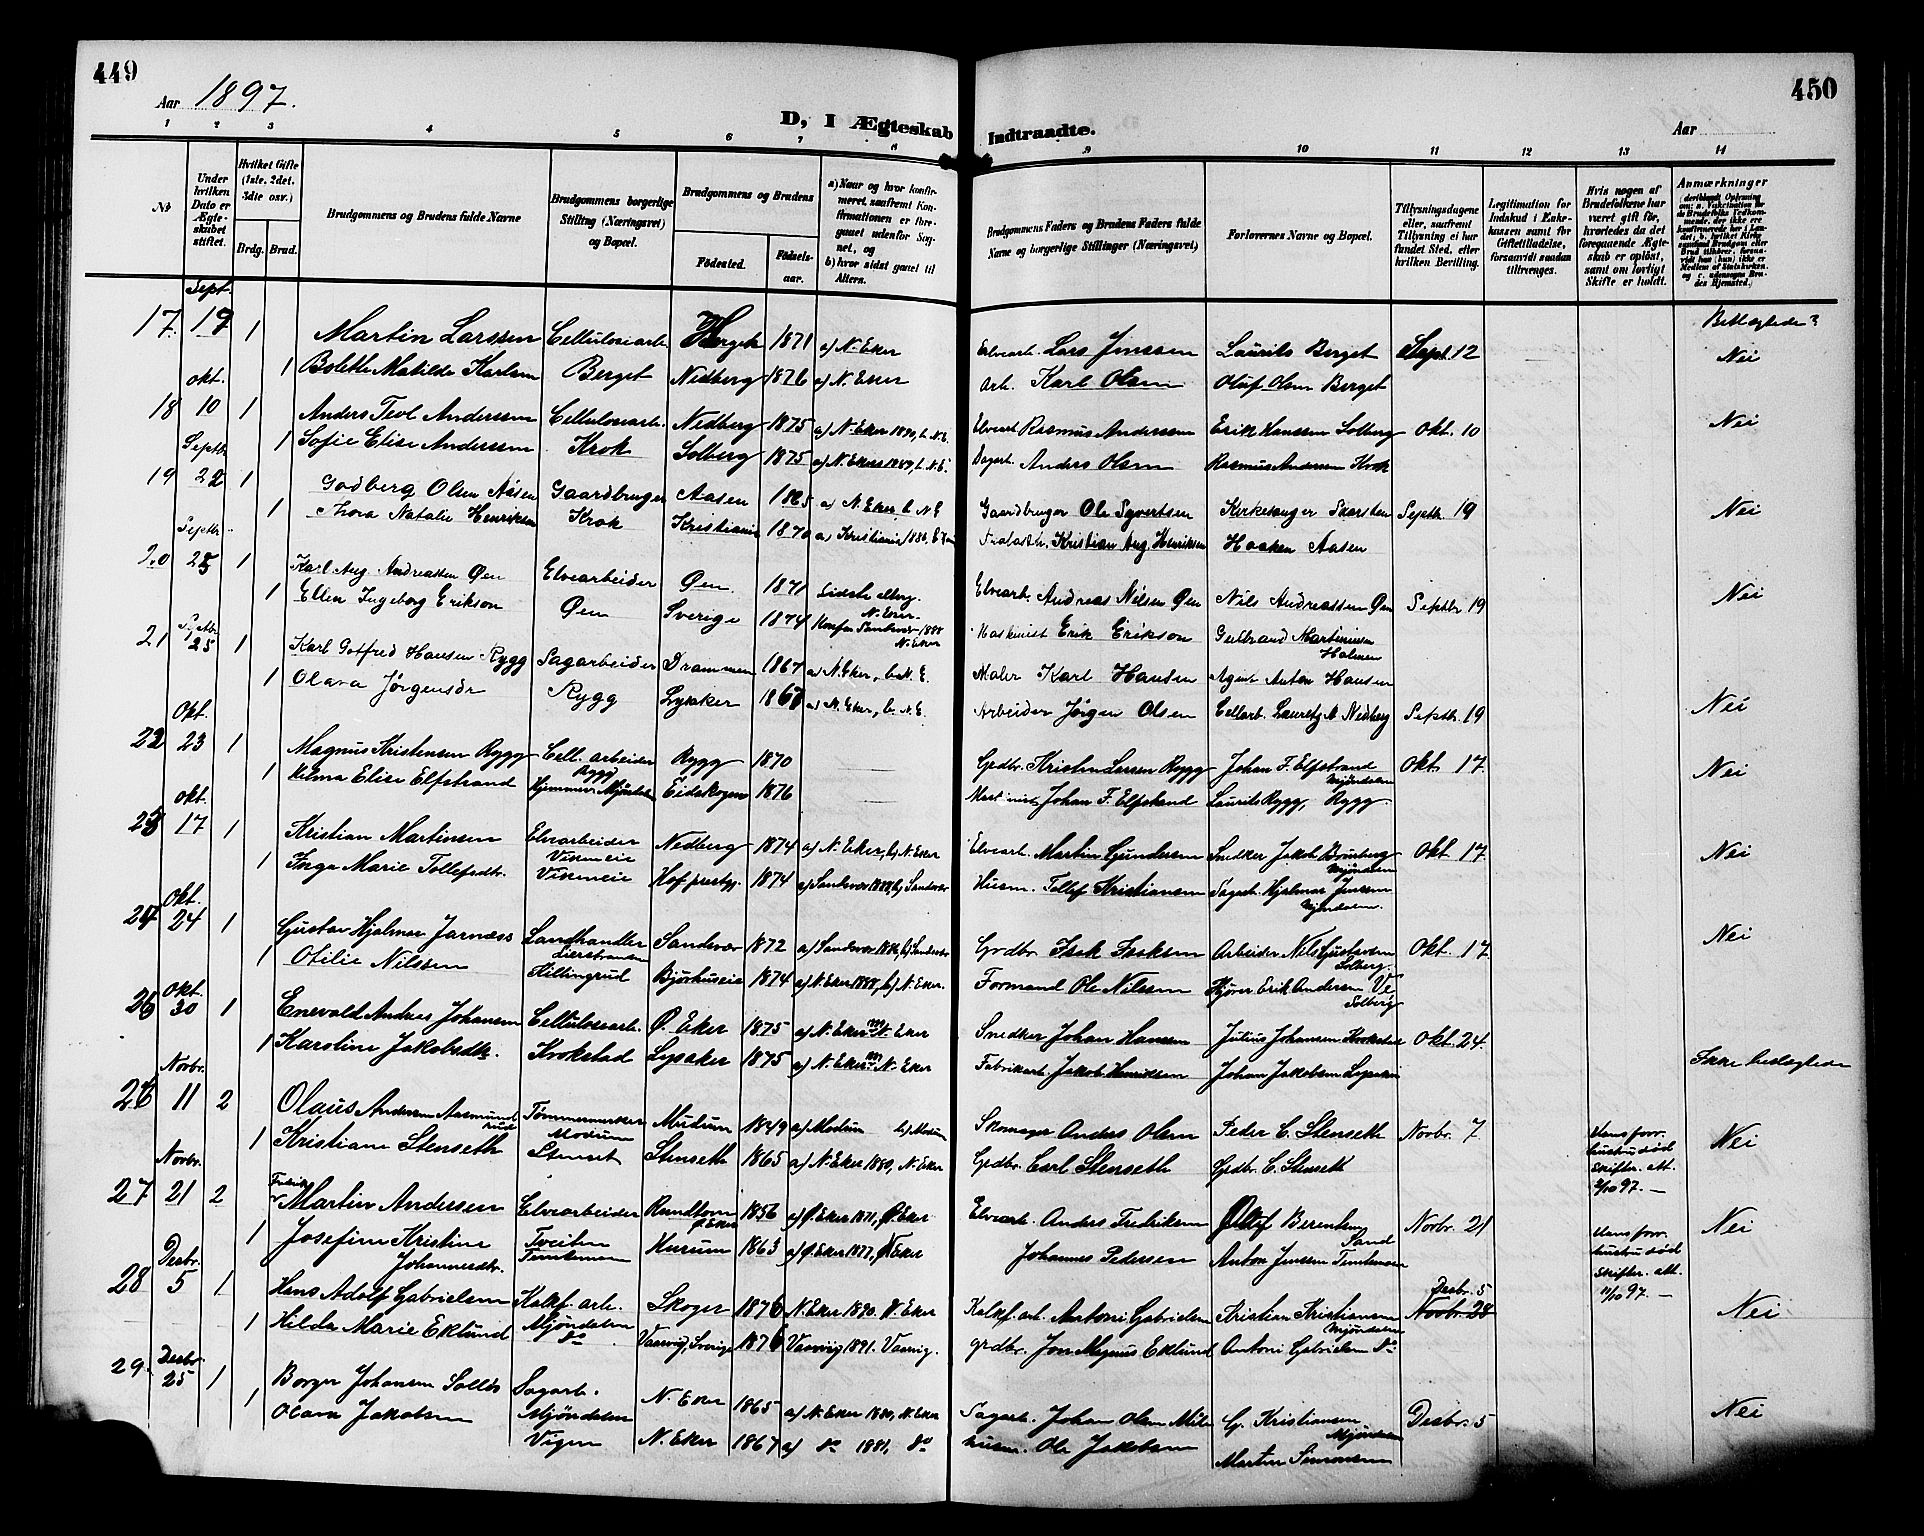 449
450
Aar 1897.
D, I Ægteskab Indtraadte.
Aar
1 2 3 4 5 6 7 8 9 10 11 12 13 14
№
Under hvilken Dato er Ægteskabet stiftet.
Hvilket Gifte (1ste, 2det, 3dte osv.)
Brdg. Brud.
Brudgommens og Brudens fulde Navne
Brudgommens borgerlige Stilling (Næringsvei) og Bopæl.
Brudgommens og Brudens
Fødested.
Fødselsaar.
a) Naar og hvor konfirmeret, saafremt Konfirmationen er foregaaet udenfor Sognet, og
b) hvor sidst gaaet til Alters.
Brudgommens Faders og Brudens Faders fulde Navne og borgerlige Stillinger (Næringsvei)
Forlovernes Navne og Bopæl.
Tillysningsdagene eller, saafremt Tillysning ei har fundet Sted, efter hvilken Bevilling.
Legitimation for Indskud i Enkekassen samt for Giftetilladelse, forsaavidt saadan tiltrænges.
Hvis nogen af Brudefolkene har været gift før, hvorledes da det foregaaende Ægteskab er opløst, samt om lovligt Skifte er holdt.
Anmærkninger
Sept.
17. 19 1 Martin Larssen Cellulosearb. Berget 1871 a) N. Eker Elvearb. Lars Jenssen Laurits Berget Sept. 12 Beslægtede? Nei
1 Bolette Matilde Karlsen Berget Nedberg 1876 a) N. Eker Arb. Karl Olsen Oluf Olsen Berget
Okt.
18 10 1 Anders Teol Anderssen Cellulosearb. Nedberg 1875 a) N. Eker 1890, b. N. E. Elvearb. Rasmus Anderssen Erik Hanssen Solberg Okt. 10 Nei
1 Sofie Elise Anderssen Krok Solberg 1875 a) N. Eker 1889, b. N. E. Sagarb. Anders Olsen Rasmus Andersen Krok
Septb.
19 22 1 Godberg Olsen Aasen Gaardbruger Aasen 1865 a) N. Eker, b. N. E. Gaardbruger Ole Syvertsen Kirkesanger Skarsten Septb. 19 Nei
1 Thora Natalie Henriksen Krok Kristiania 1870 a) Kristiania 1886, Kristian Aug. Henriksen Haaken Aasen
Septbr.
20 25 1 Karl Aug. Andreassen Øen Elvearbeider Øen 1871 N. Eker Elvearb. Andreas Nilsen Øen Nils Andreassen Øen Septbr 19 Nei
1 Ellen Ingeborg Erikson Øen Sverige 1874 Konf. Sandsvær 1888 N. Eker Maskinist Erik Erikson Gulbrand Martinsen Holmen
Septbr
21 25 1 Karl Gotfred Hansen Rygg Sagarbeider Drammen 1867 a) N. Eker, b. N. E. Maler Karl Hansen Agent Anton Hansen
1 Olava Jørgensdr Rygg Lysaker 1867 a) N. Eker, b. N. E. Arbeider Jørgen Olsen Cellarb. Lauretz A Nedberg Septb. 19 Nei
Okt.
22 23 1 Magnus Kristensen Rygg Cell. arbeider Rygg Rygg 1870 Grdbr. Kristen Larsen Rygg Johan F. Elfstrand Mjøndalen Okt. 17 Nei
1 Hilma Elise Elfstrand Hjemmev. Mjøndalen Eidskogen 1876 Johan F. Elfstrand Laurits Rygg, Rygg.
Okt.
23 17 1 Kristian Martinsen Elvearbeider Nedberg 1874 a) N. Eker, b) N. Eker Elvearb. Martin Gundersen Snedker Jakob Bromberg Mjøndalen Okt 17 Nei
1 Inga Marie Tollefsdtr. Hof prestgj. 1874 a) Sandsvær 1888, b) Sandsvær Husm. Tollef Kristiansen Sagarb. Hjalmar Jenssen Mjøndalen.
Okt.
24 24 1 Gustav Hjalmar Jarness Landhandler Lierstranden Sandsvær 1872 a) Sandsvær 1886, b) Sandsvær Grdbr. Isak Isaksen Arbeider Nils Gustavsen Solberg. Okt. 17 Nei
1 Otilie Nilssen Killingrud Bjørhuseie 1874 a) N. Eker 1888, b) N. Eker. Formand Ole Nilssen Kjører Erik Andersen Solberg
Okt.
25 30 1 Enevald Andreas Johansen Cellulosearb. Ø. Eker 1875 a) N. Eker N. Eker Snedker Johan Hansen Julius Johansen Krokstad Okt. 24
1 Karoline Jakobsdtr. Krokstad Lysaker 1875 a) N. Eker N. Eker Fabrikarb. Jakob Henriksen Johan Jakobsen Lysaker Ikke beslægtede
Novbr.
26 11 2 Olaus Andersen Aasmundrud Tømmermerker Modum Modum 1849 a) Modum b) Modum Skomager Anders Olsen Peder C. Stenseth Novbr. 7 Hans forr. hustru død Skifter. att. 2/10 97. — Nei
1 Kristiane Stenseth Stenset Stenseth 1865 a) N. Eker 1880, N. Eker Grdbr. Carl Stenseth Grdbr. C. Stenseth
Novbr.
27 21 2 Fredrik Martin Andersen Elvearbeider Rundtom Ø. Eker 1856 a) Ø. Eker 1871, Ø. Eker Elvearb. Anders Fredriksen Oluf Berentsen Sand Novbr. 21 Hans forr. hustru død Skifter. att. 11/10 97. — Nei
1 Josefine Kristine Johannesdtr. Tveiten Hurum 1863 a) Ø. Eker 1877, N. Eker Johannes Pedersen Anton Jenssen
Desbr.
28 5 1 Hans Adolf Gabrielsen Kalkf. arb. Mjøndalen Skoger 1876 N. Eker 1890. N. Eker Kalkf. arb. Antoni Gabrielsen Kristian Kristiansen Mjøndalen Desbr. 5 Novbr. 28 Nei
1 Hilda Marie Eklund do Vaarvig, Sverige 1876 Vaarvig 1891. Vaarvig. grdbr. Jon Magnus Eklund Antoni Gabrielsen do
Desbr.
29. 25 1 Borger Johansen Sagarb. Mjøndalen N. Eker 1865 a) N. Eker 1880, N. Eker Sagarb. Johan Olsen G. Kristiansen Mjøndalen Desbr. 5 Nei
1 Olava Jakobsen Vigen N. Eker 1867 a) do 1881, do husm. Ole Jakobsen Martin Simonsen